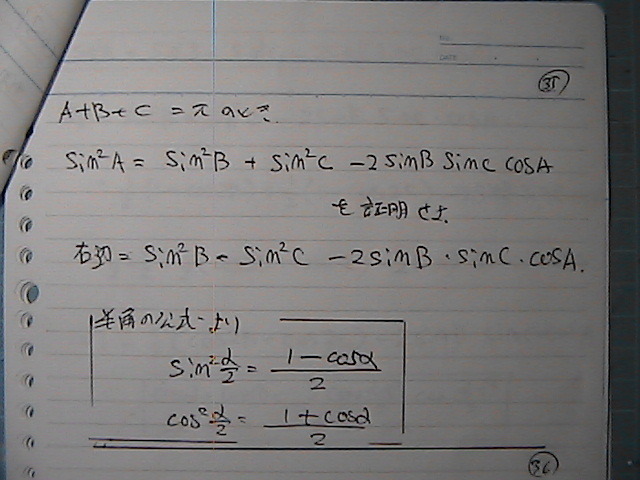 NO.
DATE
㉟
A+B+C = π のとき
Sin²A = Sin²B + Sin²C - 2 SinB SinC COSA
を証明せよ.
右辺 = Sin²B - Sin²C - 2 SinB・SinC・COSA.
半角の公式より
Sin² α/2 = (1 - cosα)/2
cos² α/2 = (1 + cosα)/2
㊱